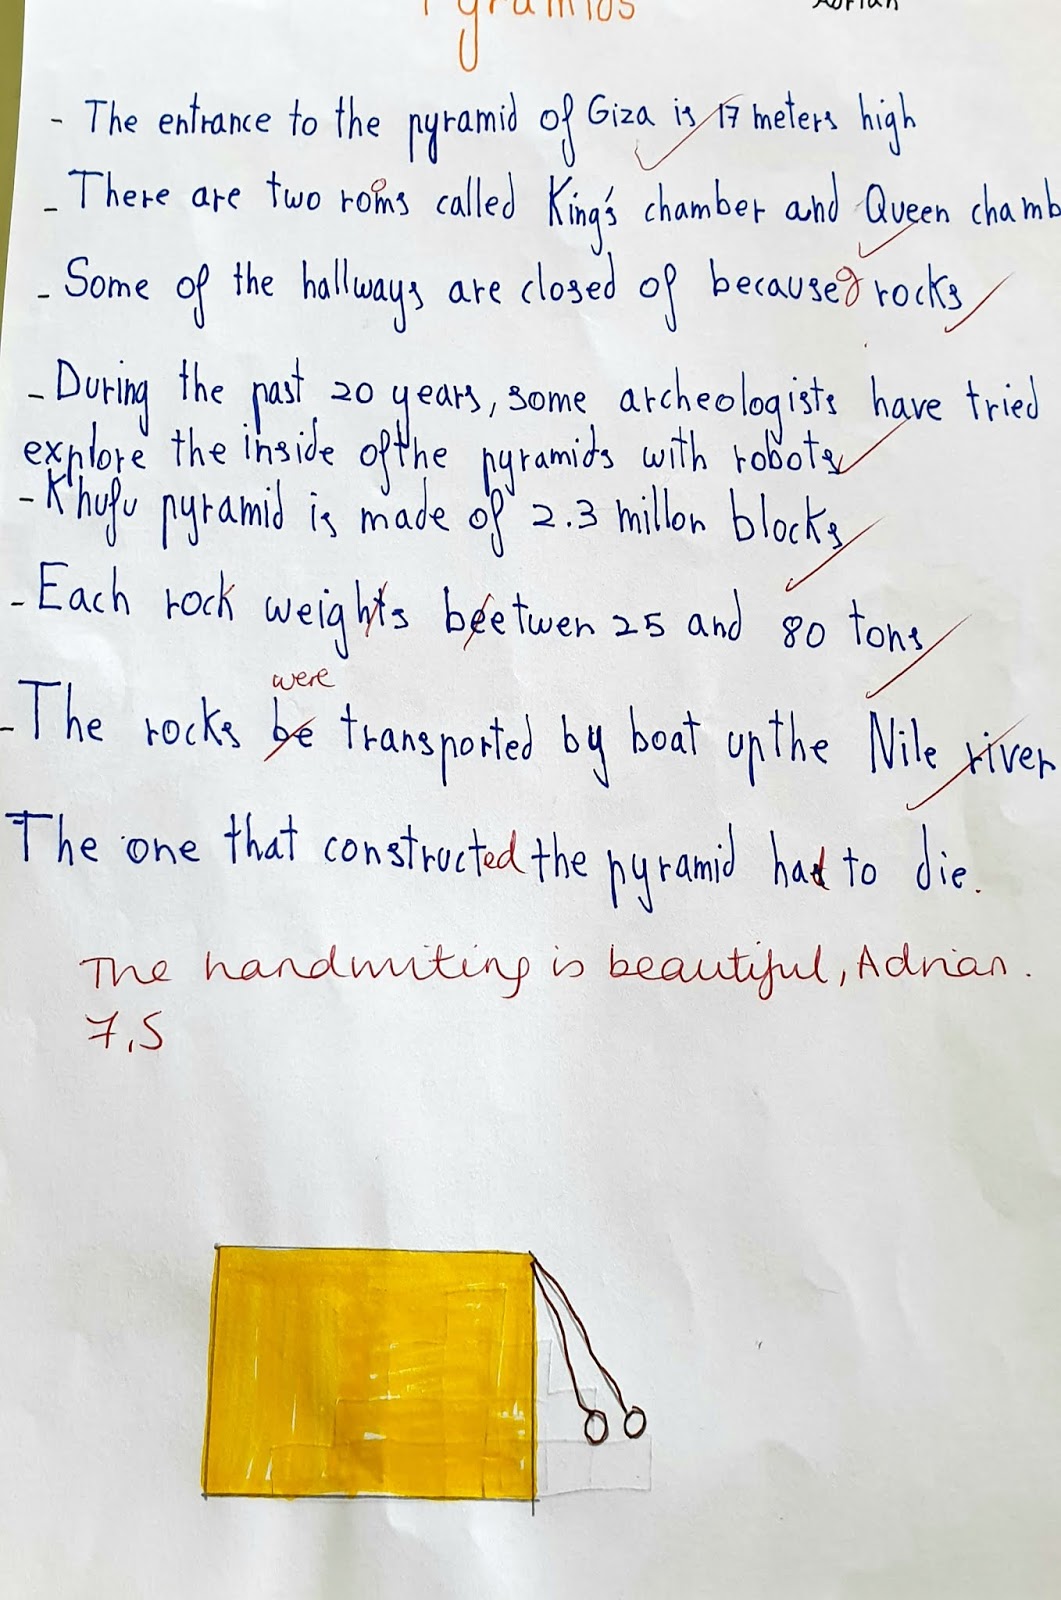 Pyramids
Adrian
- The entrance to the pyramid of Giza is 17 meters high
- There are two roms called King's chamber and Queen chamb
o
- Some of the hallways are closed of because rocks
- During the past 20 years, some archeologists have tried
explore the inside of the pyramids with robots
- Khufu pyramid is made of 2.3 millon blocks
- Each rock weights beetwen 25 and 80 tons
were
- The rocks be transported by boat up the Nile river
The one that constructed the pyramid had to die.
The handwriting is beautiful, Adrian.
7,5